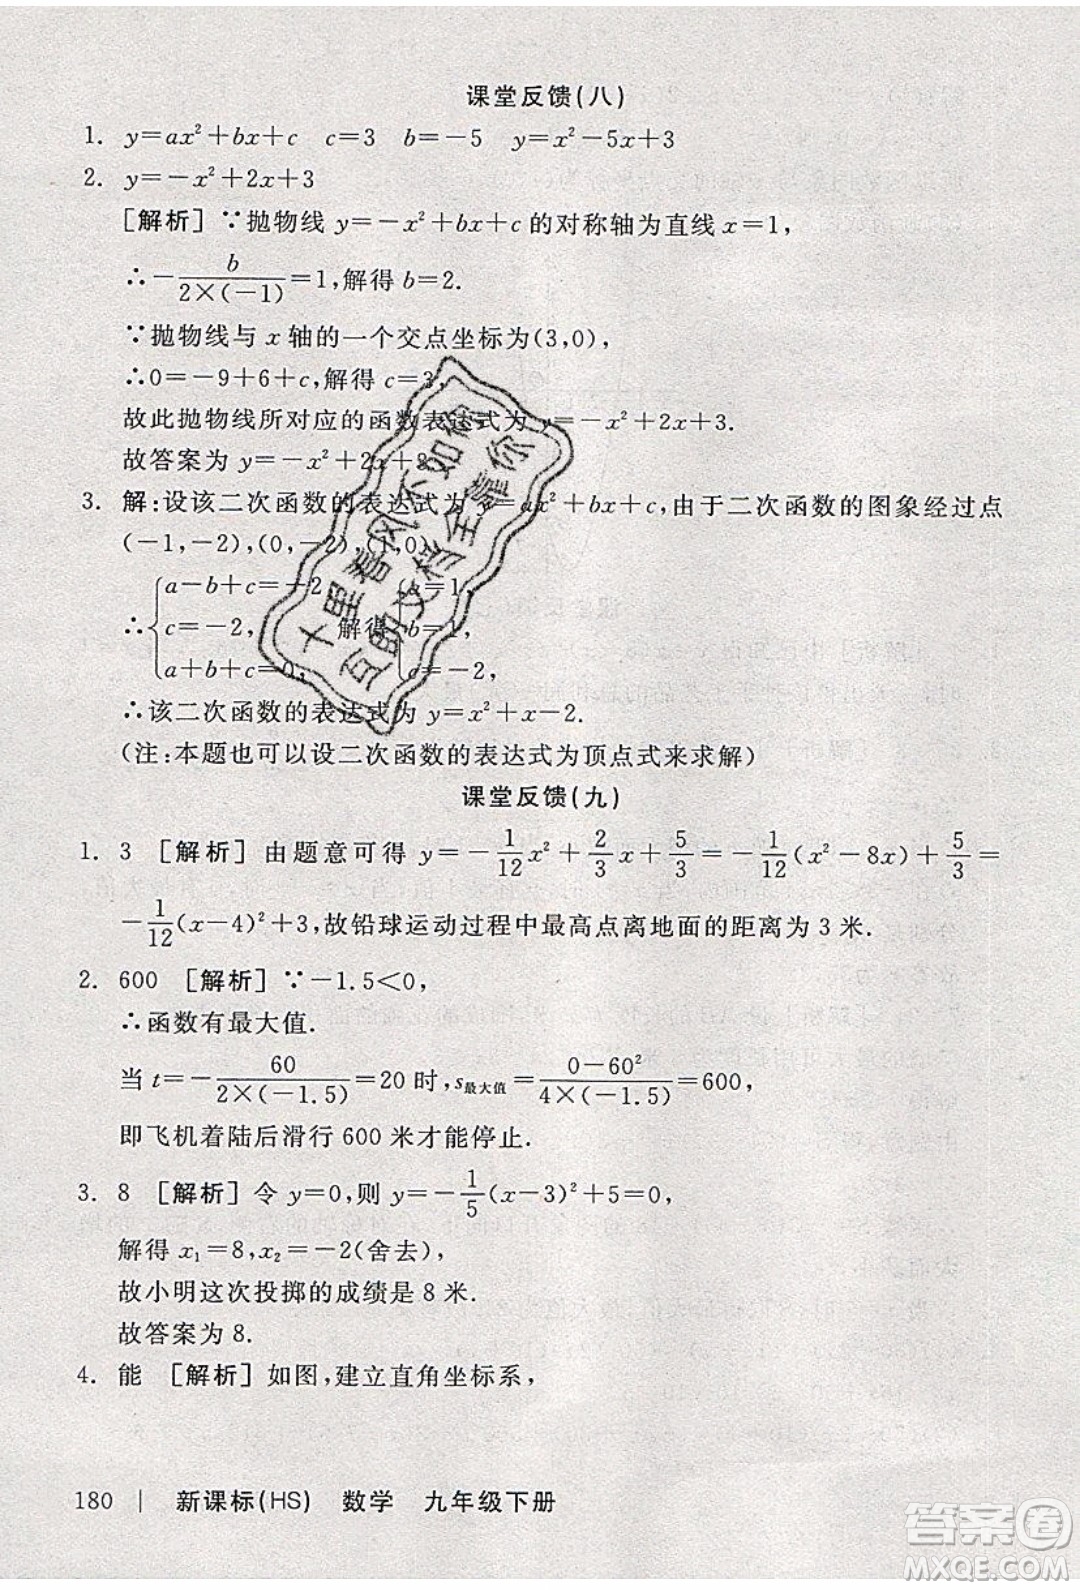 课堂反馈(八)
1. y=ax²+bx+c c=3 b=-5 y=x²-5x+3
2. y=-x²+2x+3
[解析] ∵抛物线 y=-x²+bx+c 的对称轴为直线 x=1,
∴-b/(2×(-1))=1,解得 b=2.
∵抛物线与 x 轴的一个交点坐标为(3,0),
∴0=-9+6+c,解得 c=3,
故此抛物线所对应的函数表达式为 y=-x²+2x+3.
故答案为 y=-x²+2x+3.
3. 解:设该二次函数的表达式为 y=ax²+bx+c,由于二次函数的图象经过点
(-1,-2),(0,-2),(1,0)
∴{a-b+c=-2
c=-2, 解得{
a+b+c=0, c=-2.
∴该二次函数的表达式为 y=x²+x-2.
(注:本题也可以设二次函数的表达式为顶点式来求解)
十里春风不如你
互助文档全靠你
课堂反馈(九)
1. 3 [解析] 由题意可得 y=-1/12x²+2/3x+5/3=-1/12(x²-8x)+5/3=
-1/12(x-4)²+3,故铅球运动过程中最高点离地面的距离为 3 米.
2. 600 [解析] ∵-1.5<0,
∴函数有最大值.
当 t=-60/(2×(-1.5))=20 时,s最大值=(0-60²)/(4×(-1.5))=600,
即飞机着陆后滑行 600 米才能停止.
3. 8 [解析] 令 y=0,则 y=-1/5(x-3)²+5=0,
解得 x₁=8,x₂=-2(舍去),
故小明这次投掷的成绩是 8 米.
故答案为 8.
4. 能 [解析] 如图,建立直角坐标系,
180 | 新课标(HS) 数学 九年级下册
答案圈
MXQE.COM